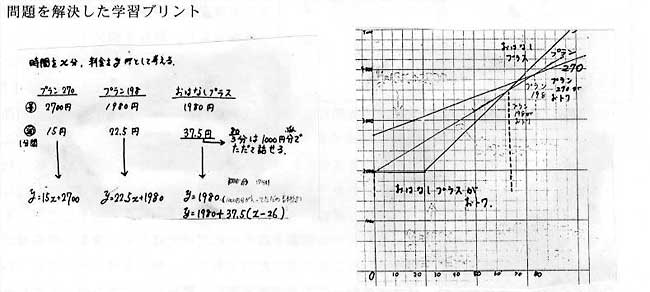 問題を解決した学習プリント
時間をx分、料金をy円として考える。
プラン270 プラン198 おはなしプラス
2700円 1980円 1980円
15円 22.5円 37.5円
1分間
分は1000円分で
ただで話せる。
y=15x+2700 y=22.5x+1980 y=1980
y=1980+37.5(x-26)
おはなし
プラス
プラン
270
プラン
270が
おトク
プラン
198
プラン
198が
おトク
おはなしプラスが
おトク.
0 10 20 30 40 50 60 70 80